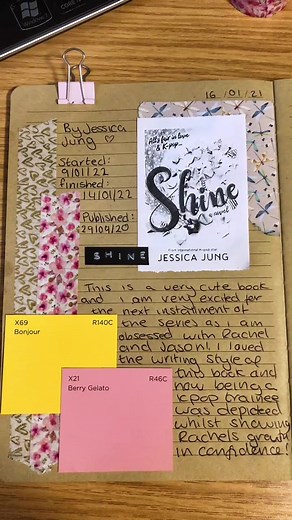 16/01/21
By Jessica
Jung ♡
Started:
9/01/22
Finished:
14/01/22
Published:
29/09/20
SHINE
All's fair in love
& K-pop...
Shine
a novel
JESSICA JUNG
This is a very cute book
and I am very excited for
the next installment of
the series as I am
obsessed with Rachel
and Jason! I loved
the writing style of
this book and
how being a
Kpop trainee
was depicted
whilst showing
Rachels growth
in confidence!
X69 R140C
Bonjour
X21 R46C
Berry Gelato